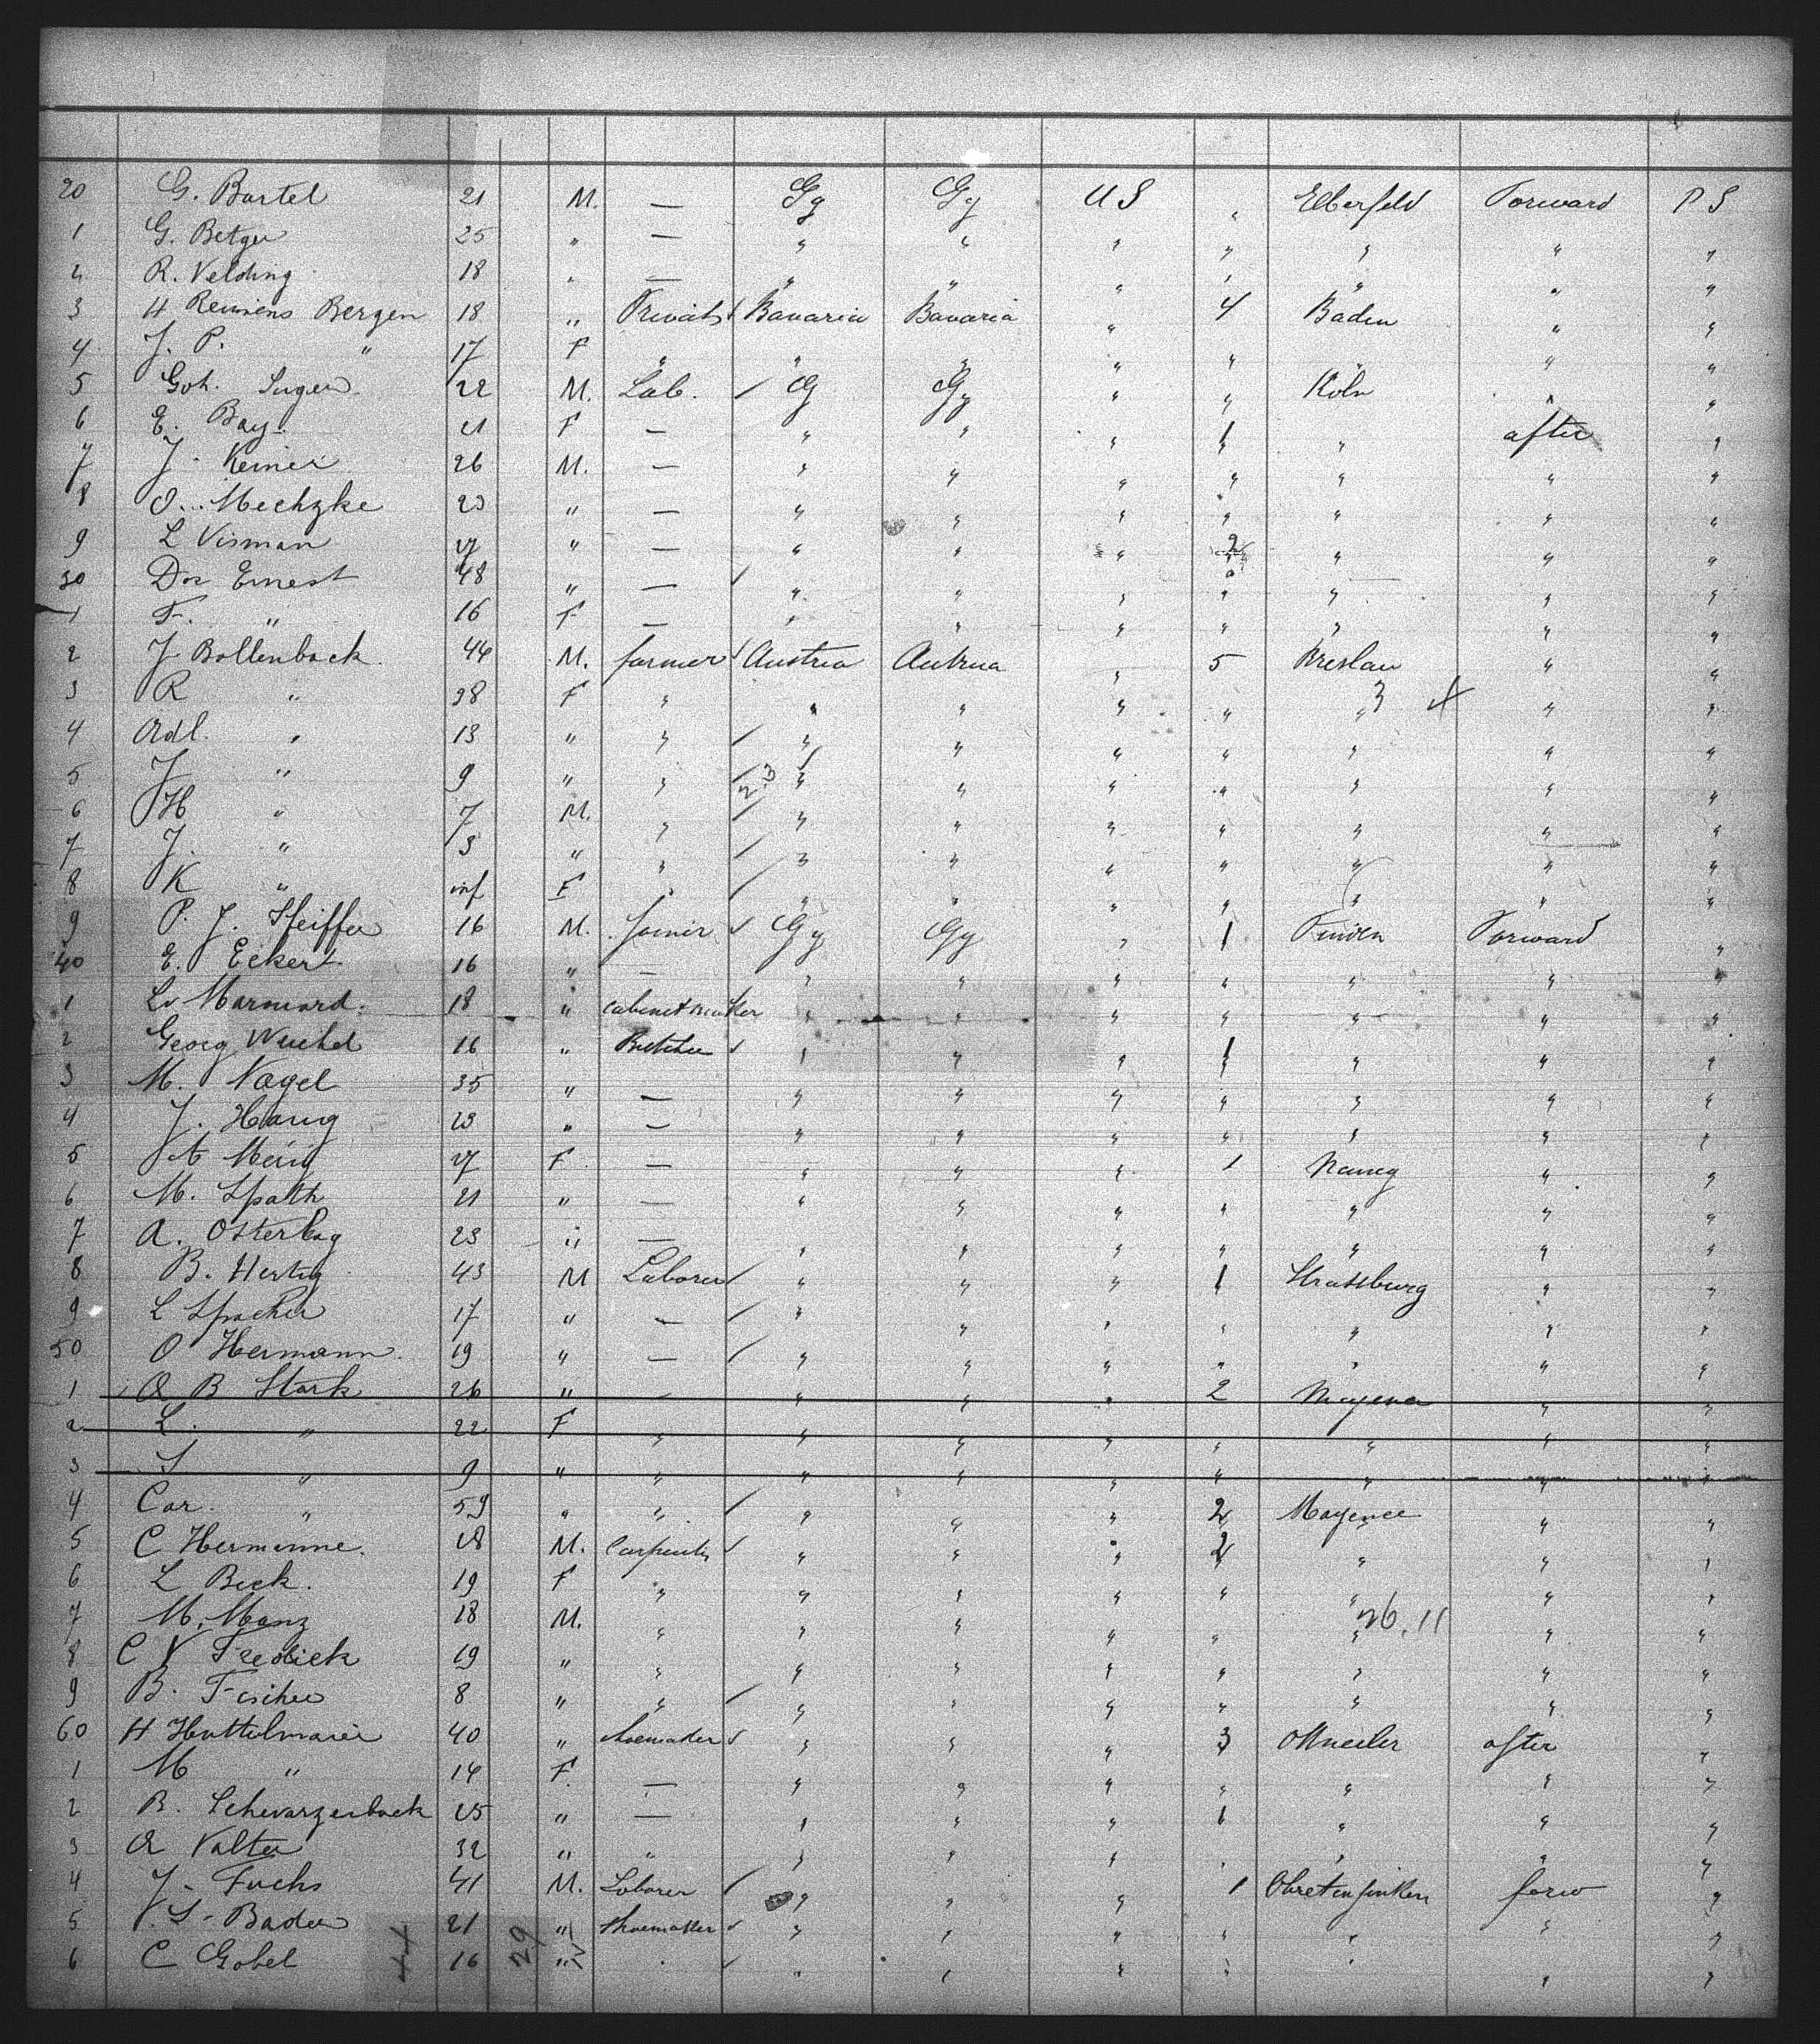 20 G. Bartel 21 M. — Gy Gy U S " Elberfeld Forward P S
1 G. Betger 25 " — " " " " " " "
2 R. Velding 18 " — " " " " " " "
3 H Bergen 18 " Privat Bavaria Bavaria " 4 Baden " "
4 J. P. " 17 F " " " " " " " "
5 Goh. 22 M. Lab. G Gy " " Köln " "
6 E. Bay. 21 F — " " " 1 " after "
7 J. 26 M. — " " " " " " "
8 Mechzke 23 " — " " " " " " "
9 L Visman 27 " — " " " 2 " " "
30 Ernest 48 " — " " " " " " "
1 F. " 16 F — " " " " " " "
2 J Bollenback 44 M. farmer Austria Autrua " 5 Breslau " "
3 R " 38 F " " " " " " 3 " "
4 Adl. " 13 " " " " " " " " "
5 J " 9 " " 2.3 " " " " " " "
6 H " 7 M. " " " " " " " "
7 J. " 3 " " " " " " " " "
8 K " inf F " " " " " " " "
9 P. J. Pfeiffer 16 M. Joiner Gy Gy " 1 Forward "
40 E. Eckert 16 " — " " " " " " "
1 18 " cabinetmaker " " " " " " "
2 Georg 16 " " " " 1 " " "
3 M. Nagel 35 " — " " " " " " "
4 J. Harig 23 " — " " " " " " "
5 27 F — " " " 1 Nancy " "
6 M. Spath 21 " — " " " " " " "
7 A. Osterbag 23 " — " " " " " " "
8 B. Hertig 43 M Laborer " " " 1 Strassburg " "
9 L 17 " — " " " " " " "
50 O Hermann 19 " — " " " " " " "
1 B Stark 26 " — " " " 2 " "
2 L. " 22 F " " " " " " " "
3 S " 9 " " " " " " " " "
4 Car. " 59 " " " " " 2 Mayence " "
5 C Hermanne. 28 M. Carpenter " " " 2 " " "
6 L Beck. 19 F " " " " " " " "
7 M. Manz 18 M. " " " " " " 26.11 " "
8 C V Fredrick 19 " " " " " " " " "
9 B. 8 " " " " " " " " "
60 H Huttelmaier 40 " shoemaker " " " 3 Ottweiler after "
1 M " 14 F. — " " " " " " "
2 B. Schwarzenback 25 " — " " " 1 " " "
3 Valter 32 " " " " " " " " "
4 J. Fuchs 41 M. Laborer " " " 1 forw "
5 Bader 21 " Shoemaker " " " " " " "
6 C Gobel 16 " " " " " " " " "
29